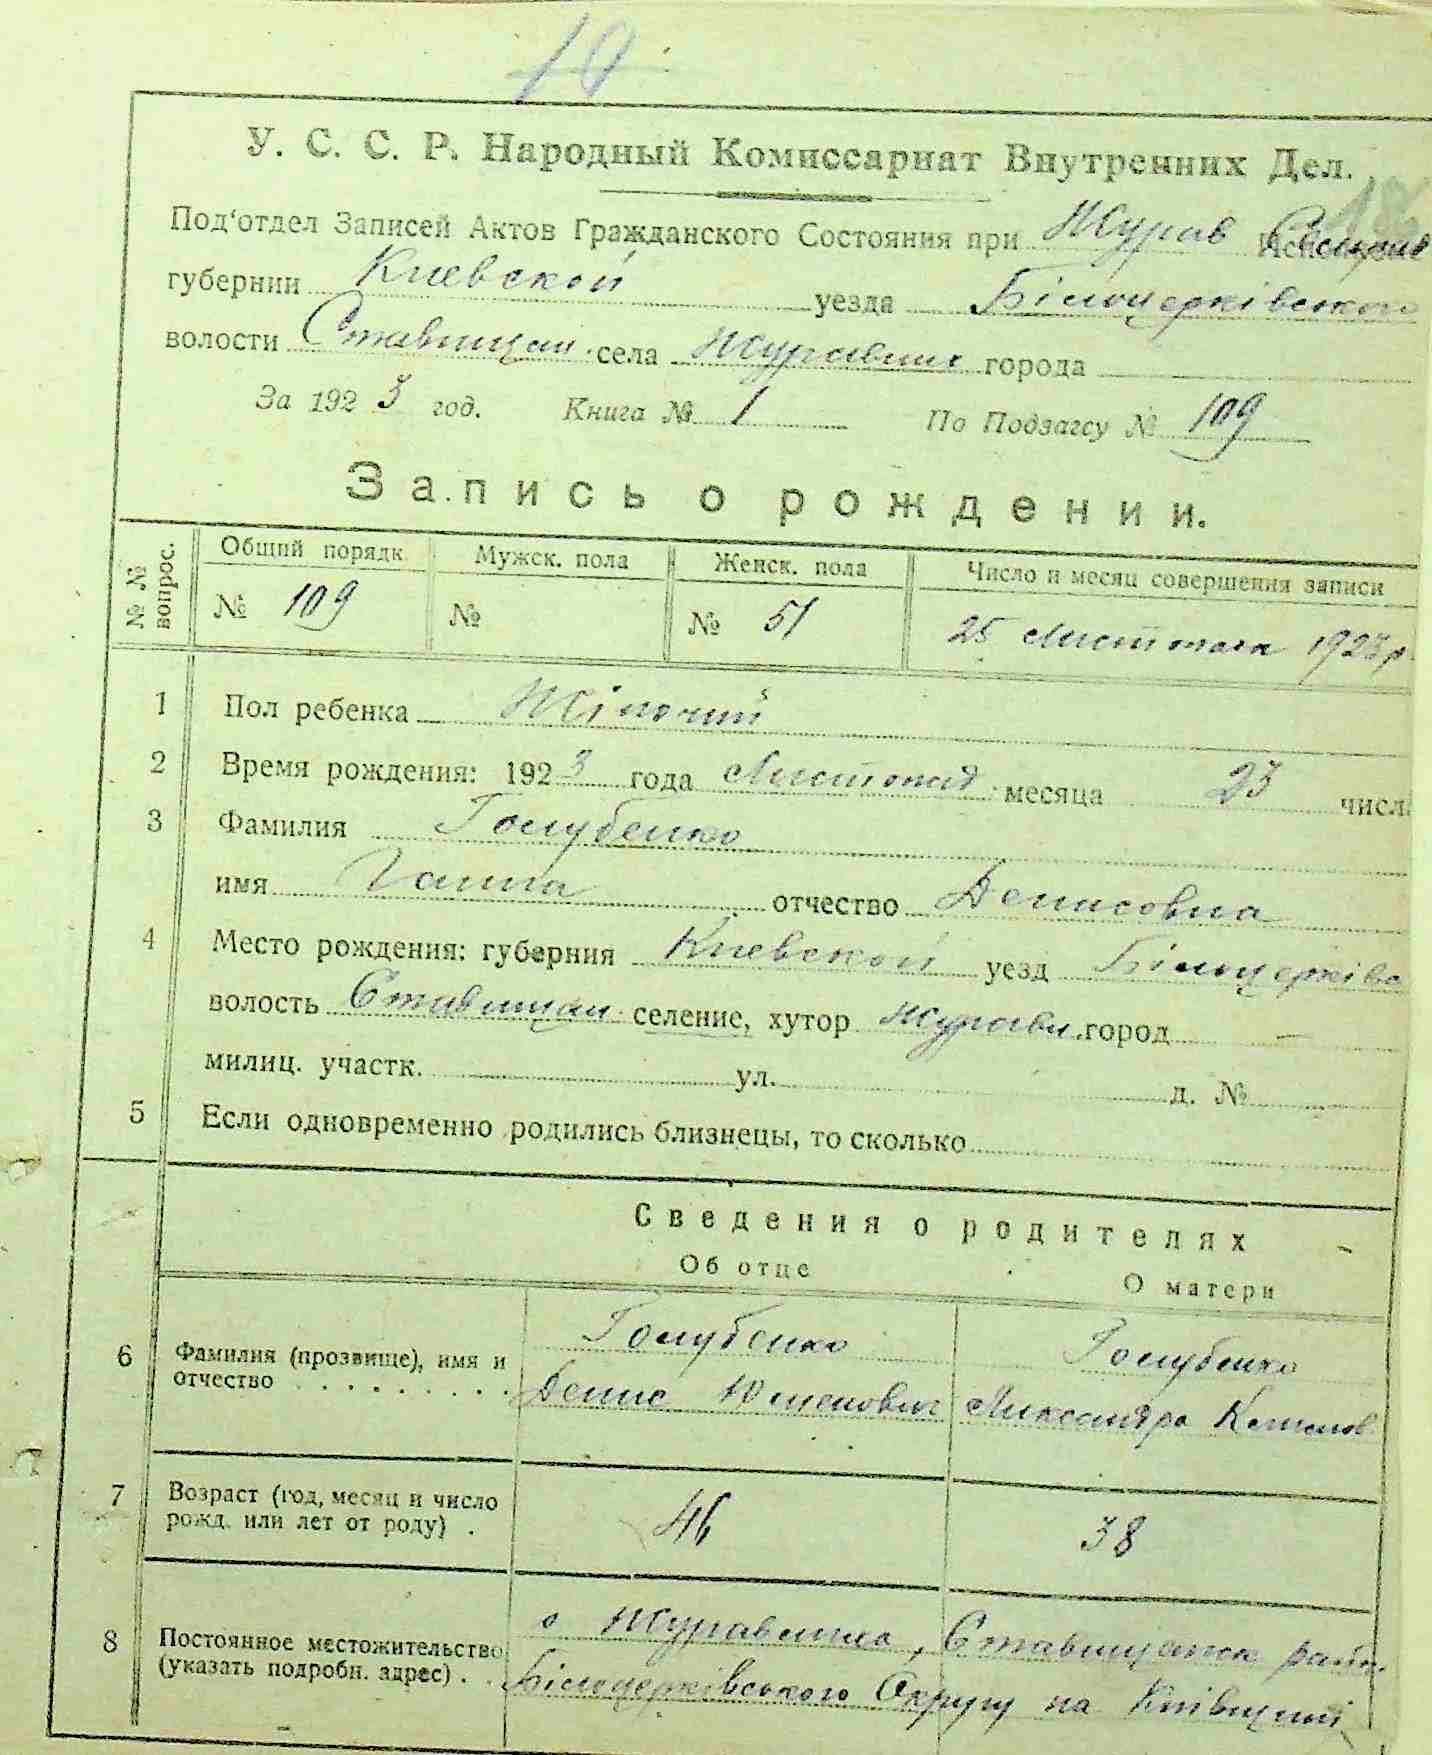 10
У. С. С. Р. Народный Комиссариат Внутренних Дел.
Под'отдел Записей Актов Гражданского Состояния при Журав
губернии Киевской уезда Білоцерківського
волости Ставищан. села Журавлиха города
За 1923 год. Книга № 1 По Подзагсу № 109
Запись о рождении.
№ № вопрос. Общий порядк. Мужск. пола Женск. пола Число и месяц совершения записи
№ 109 № № 51 25 Листопада 1923 р.
1 Пол ребенка Жіночий
2 Время рождения: 1923 года Листопад месяца 23 числ.
3 Фамилия Голубенко
имя Ганна отчество Денисовна
4 Место рождения: губерния Киевской уезд Білоцерківс
волость Ставищан. селение, хутор Журавл. город —
милиц. участк. ул. д. №
5 Если одновременно родились близнецы, то сколько
Сведения о родителях
Об отце О матери
6 Фамилия (прозвище), имя и Голубенко Голубенко
отчество Денис Александра
7 Возраст (год, месяц и число 46 38
рожд. или лет от роду) .
8 Постоянное местожительство с Журавлиха, Ставищанск. райн.
(указать подробн. адрес) . . Білоцерківського Округу на Київщині